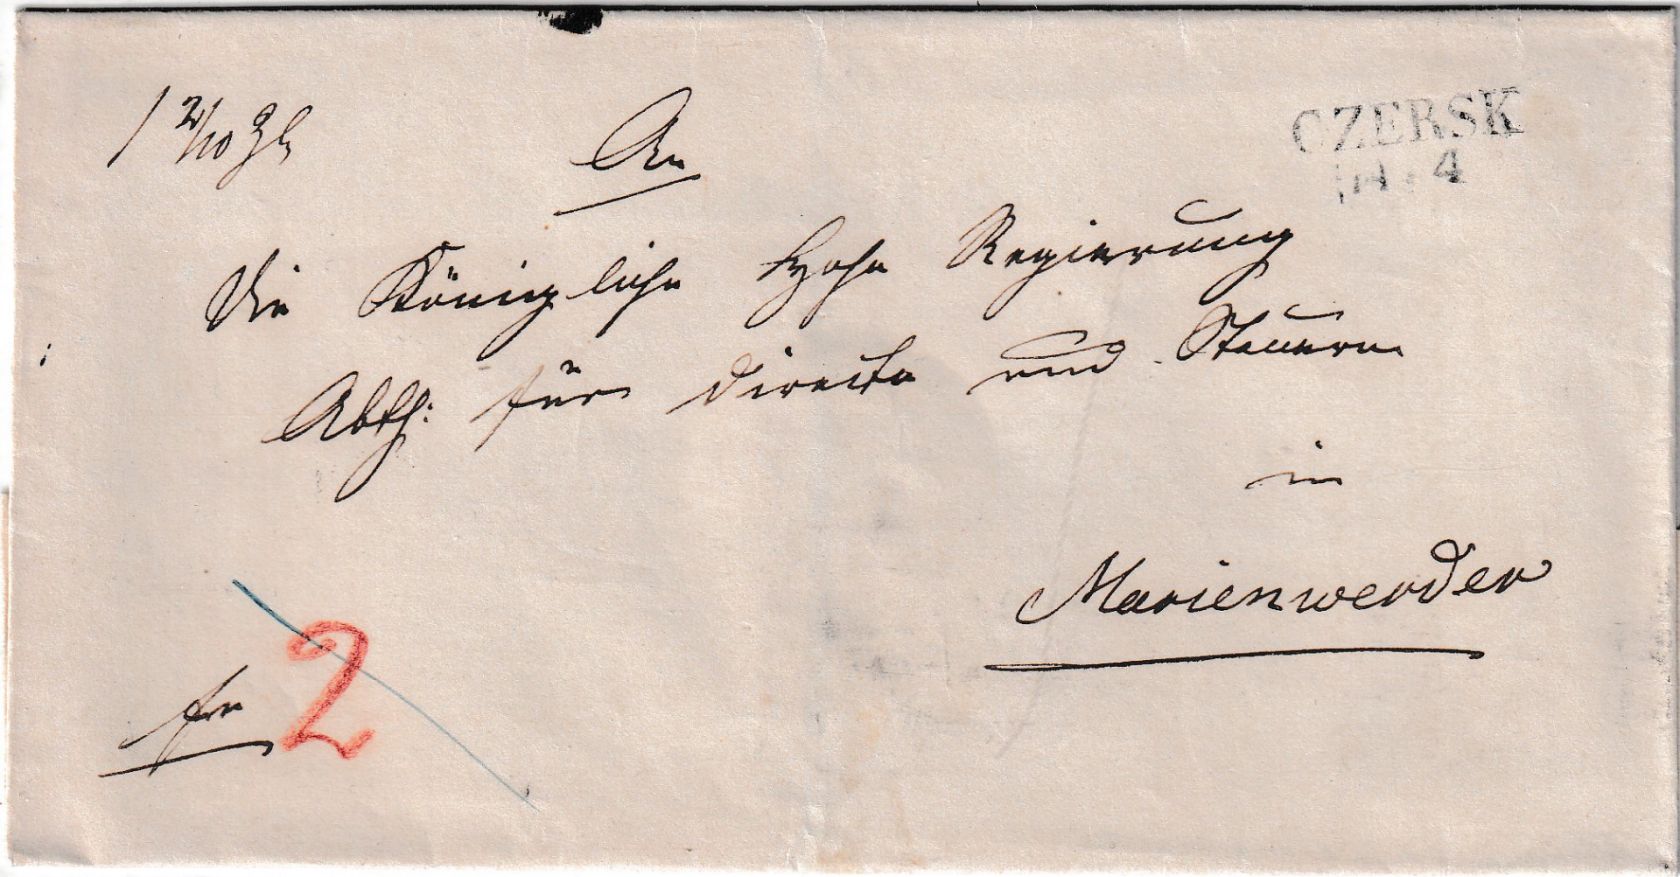 1 2/10
CZERSK
14. 4
An
die Königliche Hohe Regierung
Abth: für directe und Steuern
in
Marienwerder
fr
2